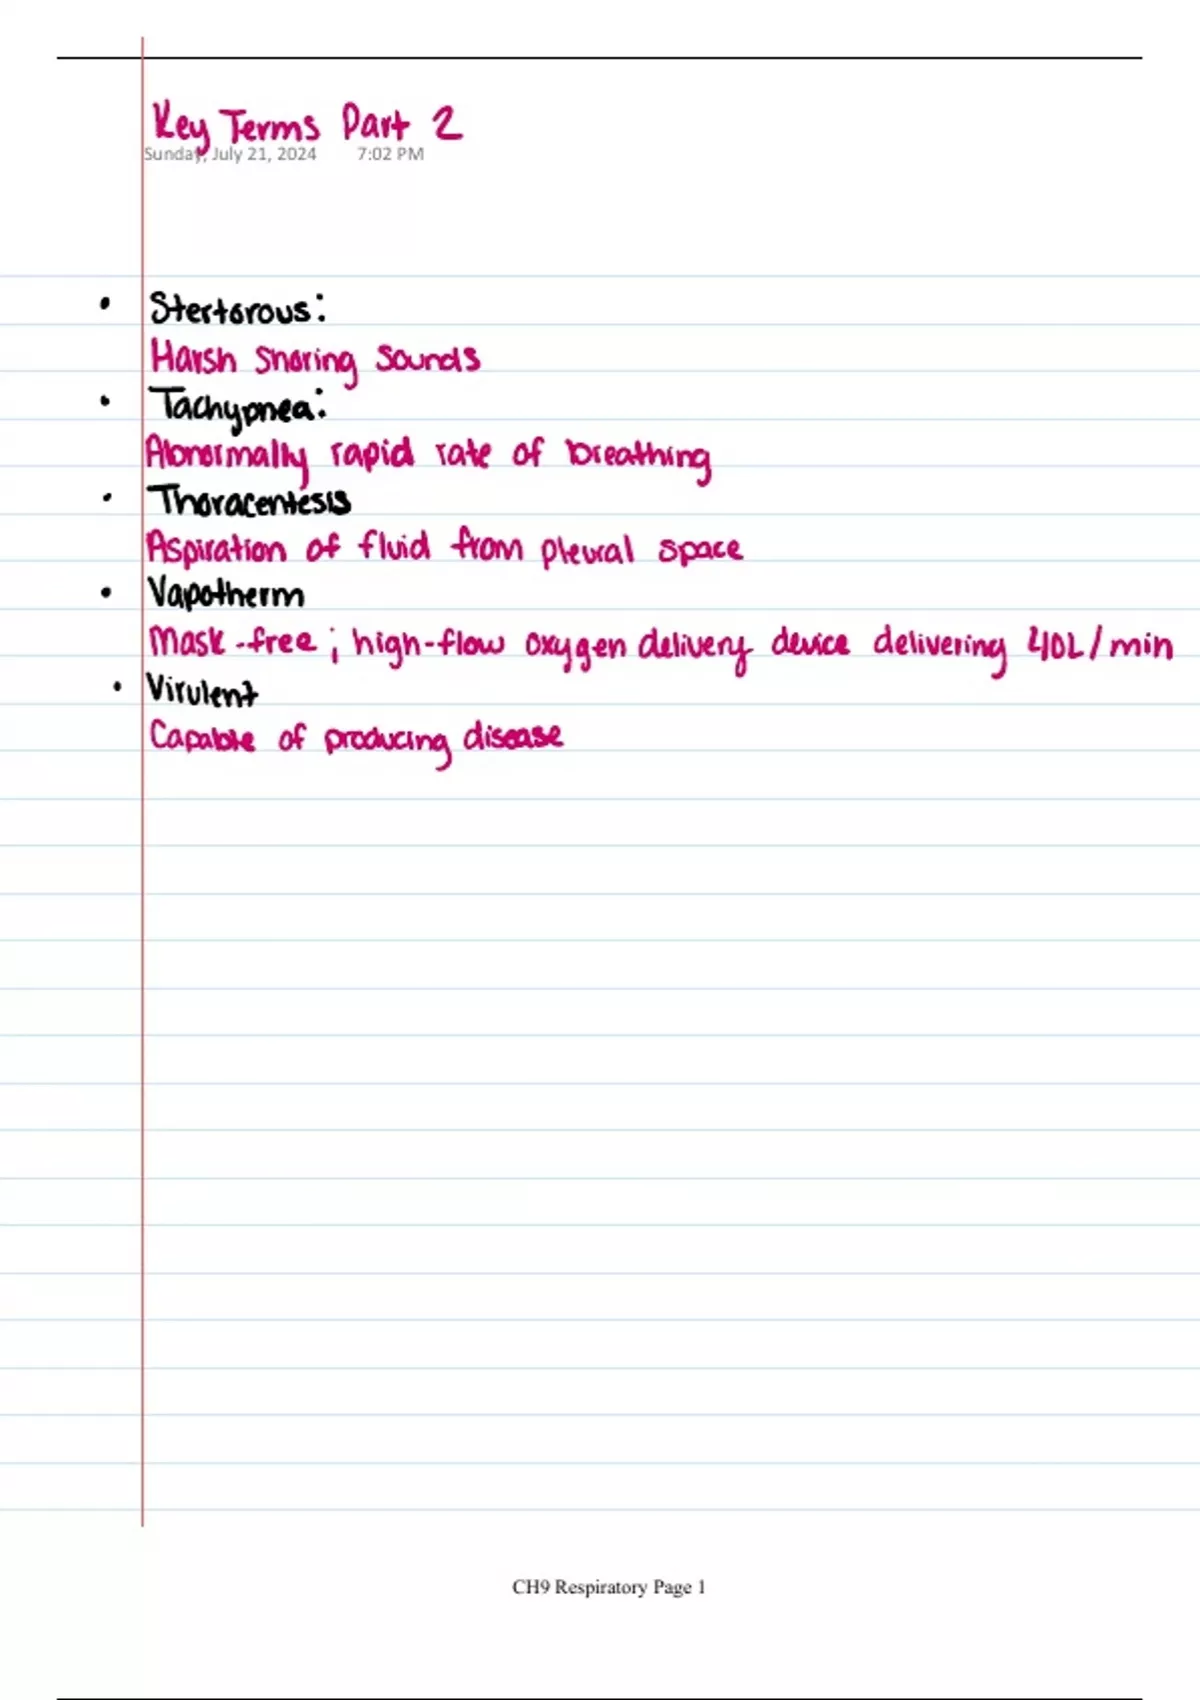 Key Terms Part 2
Sunday, July 21, 2024 7:02 PM
• Stertorous:
Harsh snoring sounds
• Tachypnea:
Abnormally rapid rate of breathing
• Thoracentesis
Aspiration of fluid from pleural space
• Vapotherm
Mask-free; high-flow oxygen delivery device delivering 40L/min
• Virulent
Capable of producing disease
CH9 Respiratory Page 1